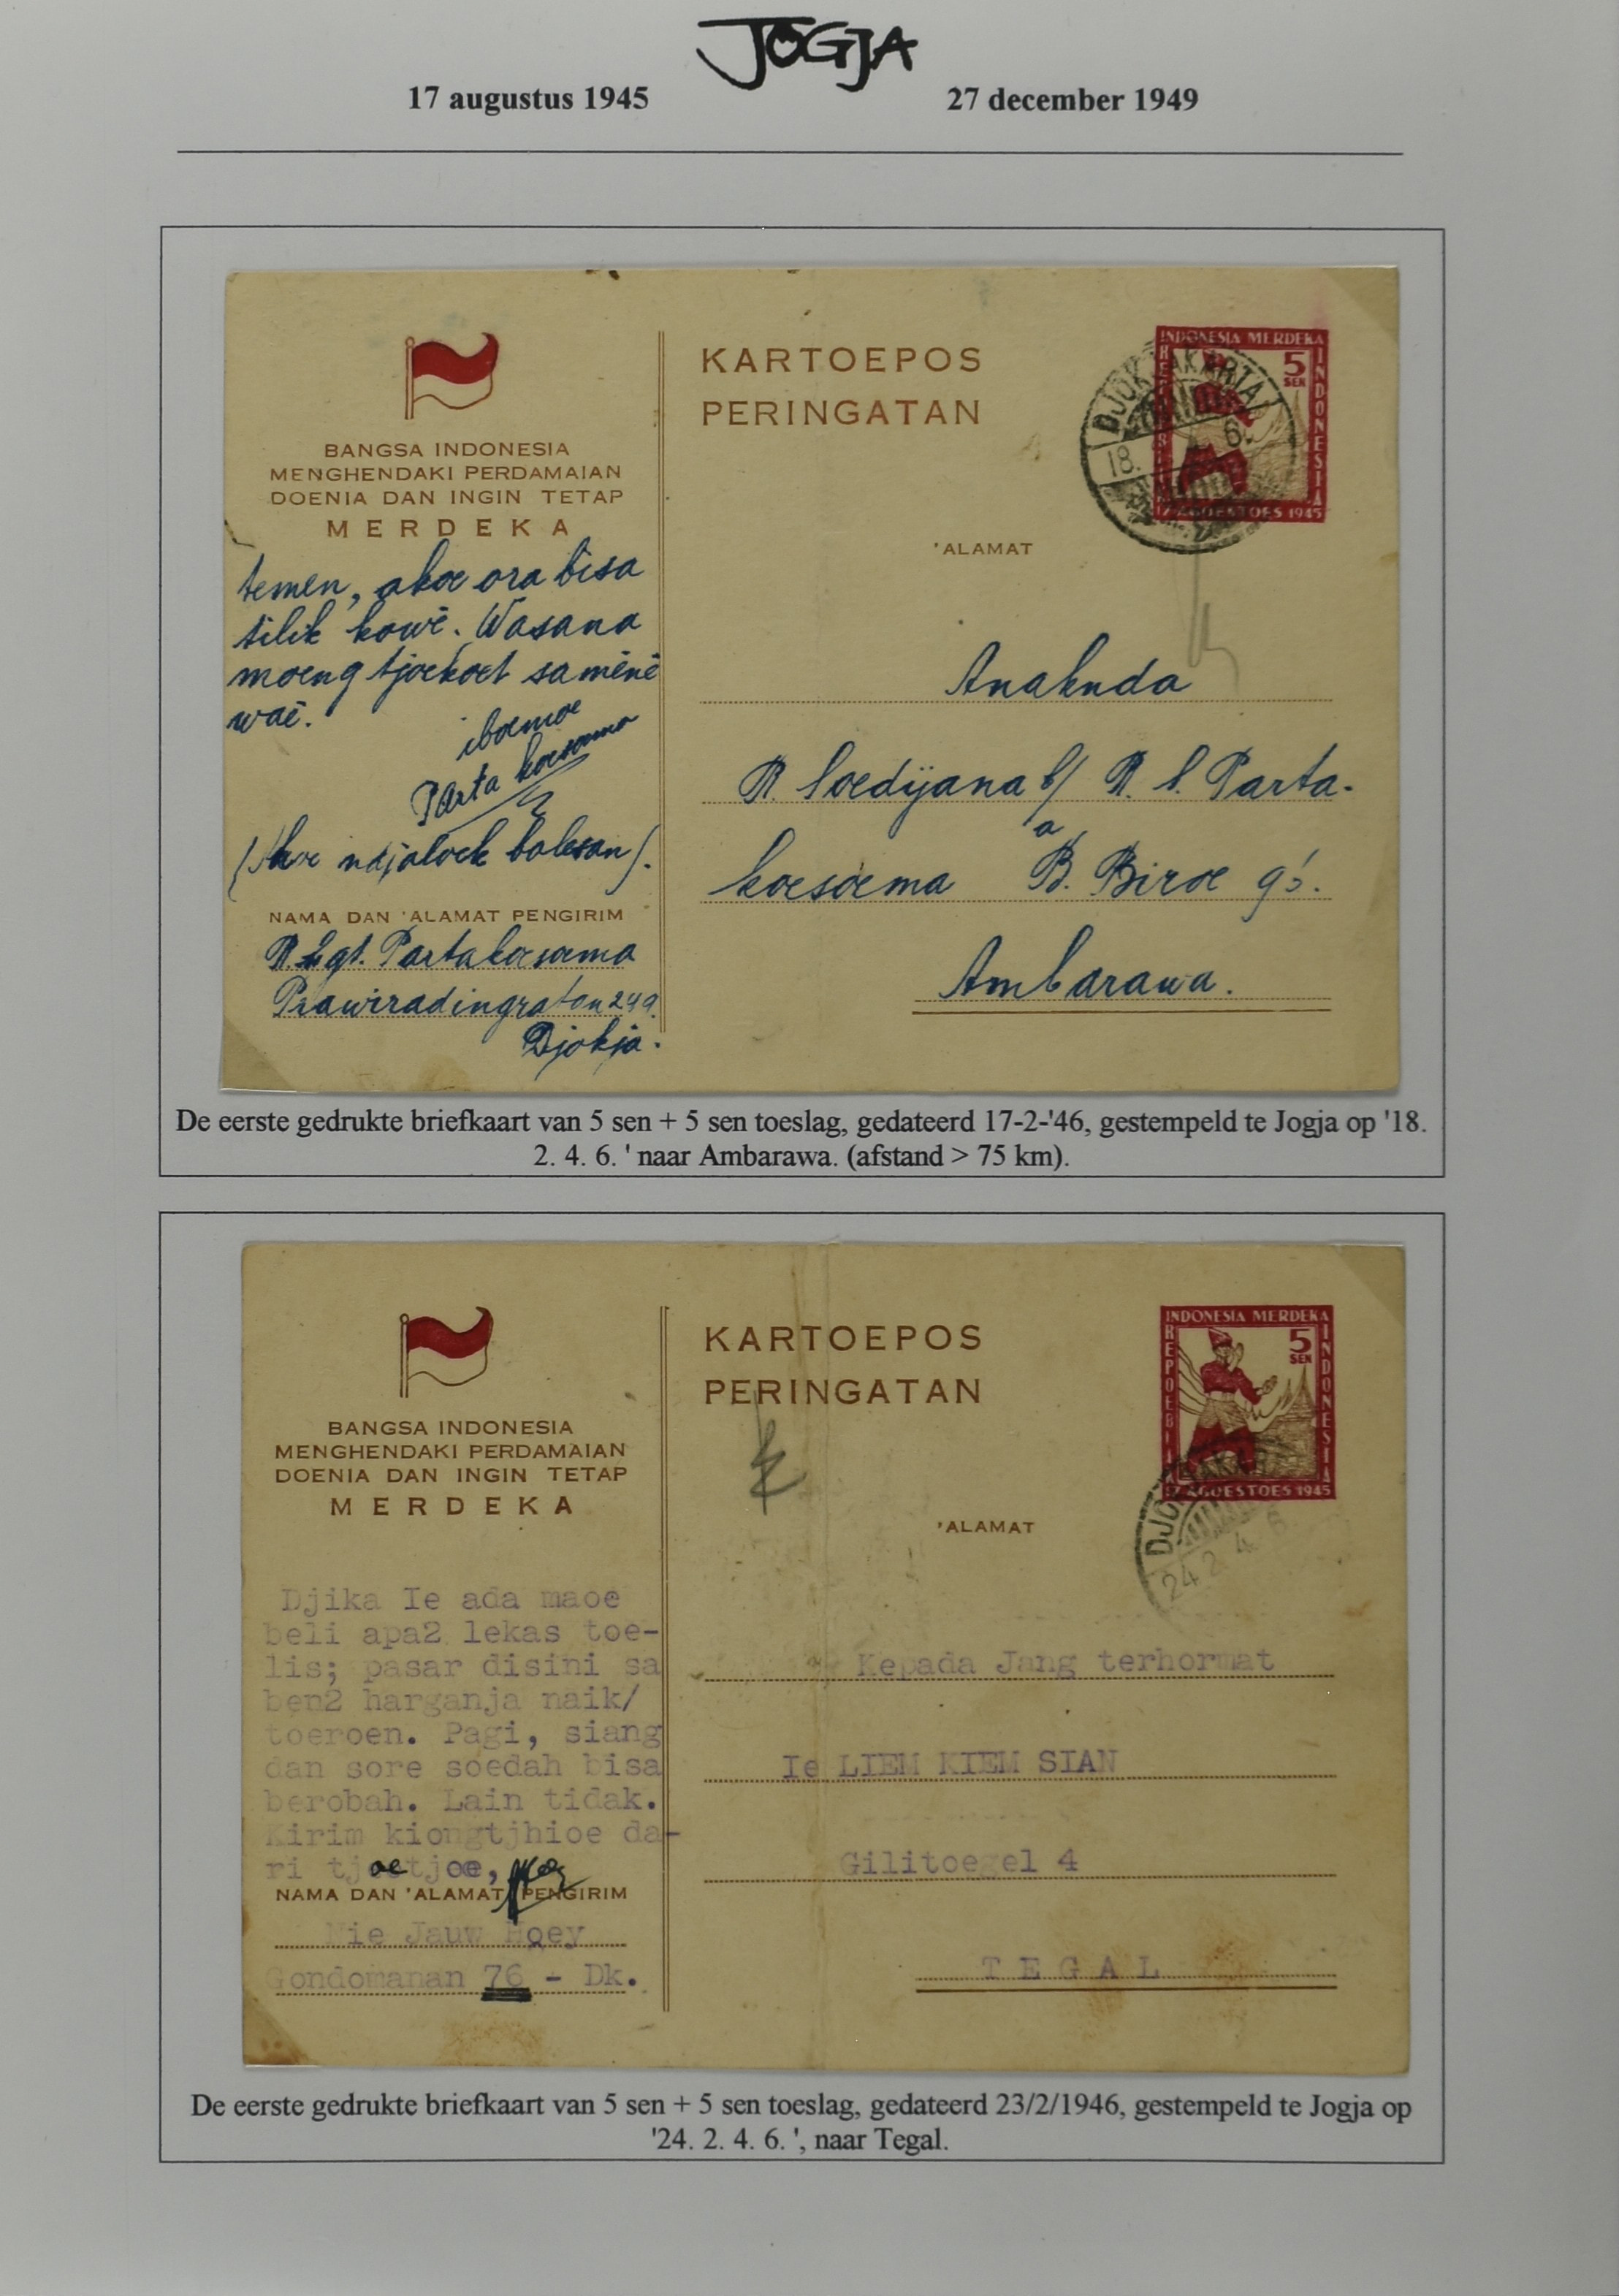 JOGJA
17 augustus 1945 27 december 1949
BANGSA INDONESIA
MENGHENDAKI PERDAMAIAN
DOENIA DAN INGIN TETAP
MERDEKA
temen, akoe ora bisa
tilik kowé. Wasana
moeng tjoekoet saméné
waé.
iboemoe
Parta koesoema
(Akoe ndjaloek balesan).
NAMA DAN 'ALAMAT PENGIRIM
R. Lgt. Partakoesoema
Prawiradingratan 249.
Djokja.
KARTOEPOS
PERINGATAN
INDONESIA MERDEKA
5
SEN
REPOEBLIK
INDONESIA
17 AGOESTOES 1945
DJOKJAKARTA
18. 4 6.
'ALAMAT
Anaknda
R. Soedijana b/ R. L. Parta-
koesoema a B. Biroe
Ambarawa.
De eerste gedrukte briefkaart van 5 sen + 5 sen toeslag, gedateerd 17-2-'46, gestempeld te Jogja op '18.
2. 4. 6. ' naar Ambarawa. (afstand > 75 km).
BANGSA INDONESIA
MENGHENDAKI PERDAMAIAN
DOENIA DAN INGIN TETAP
MERDEKA
Djika Ie ada maoe
beli apa2 lekas toe-
lis; pasar disini sa
ben2 harganja naik/
toeroen. Pagi, siang
dan sore soedah bisa
berobah. Lain tidak.
Kirim kiongtjhioe da-
ri tjoetjoe,
NAMA DAN 'ALAMAT PENGIRIM
Nie Jauw Hoey
Gondomanan 76 - Dk.
KARTOEPOS
PERINGATAN
INDONESIA MERDEKA
5
SEN
REPOEBLIK
INDONESIA
17 AGOESTOES 1945
DJOKJAKARTA
24 2. 4. 6
'ALAMAT
Kepada Jang terhormat
Ie LIEM KIEM SIAN
Gilitoegel 4
TEGAL
De eerste gedrukte briefkaart van 5 sen + 5 sen toeslag, gedateerd 23/2/1946, gestempeld te Jogja op
'24. 2. 4. 6. ', naar Tegal.